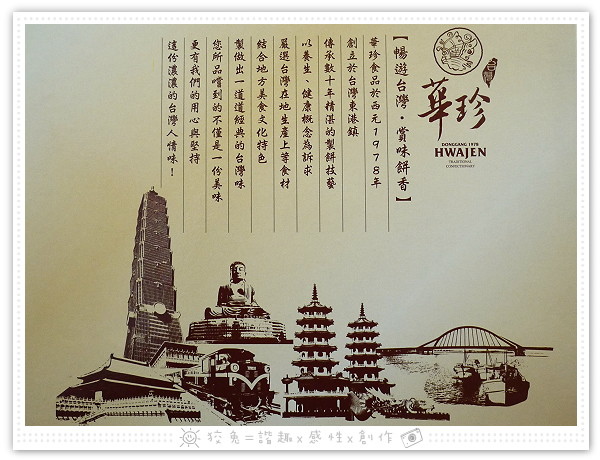 【暢遊台灣・賞味餅香】
華珍食品於西元1978年
創立於台灣東港鎮
傳承數十年精湛的製餅技藝
以養生、健康概念為訴求
嚴選台灣在地生產上等食材
結合地方美食文化特色
製做出一道道經典的台灣味
您所品嚐到的不僅是一份美味
更有我們的用心與堅持
這份濃濃的台灣人情味!
華珍
DONGGANG 1978
HWAJEN
TRADITIONAL
CONFECTIONARY
狡兔=諧趣x感性x創作